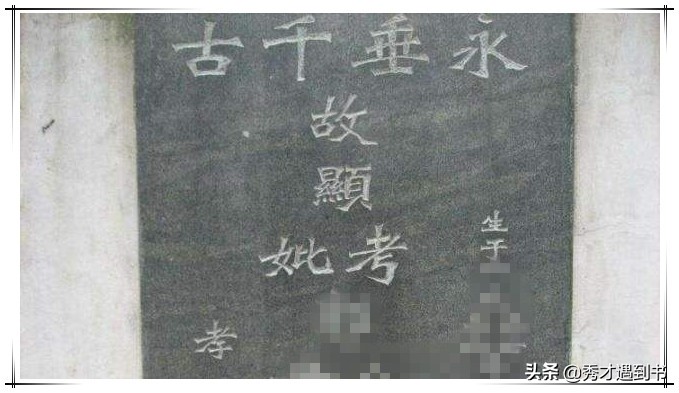 永垂千古
生于
故顯
考妣
孝
头条 @秀才遇到书